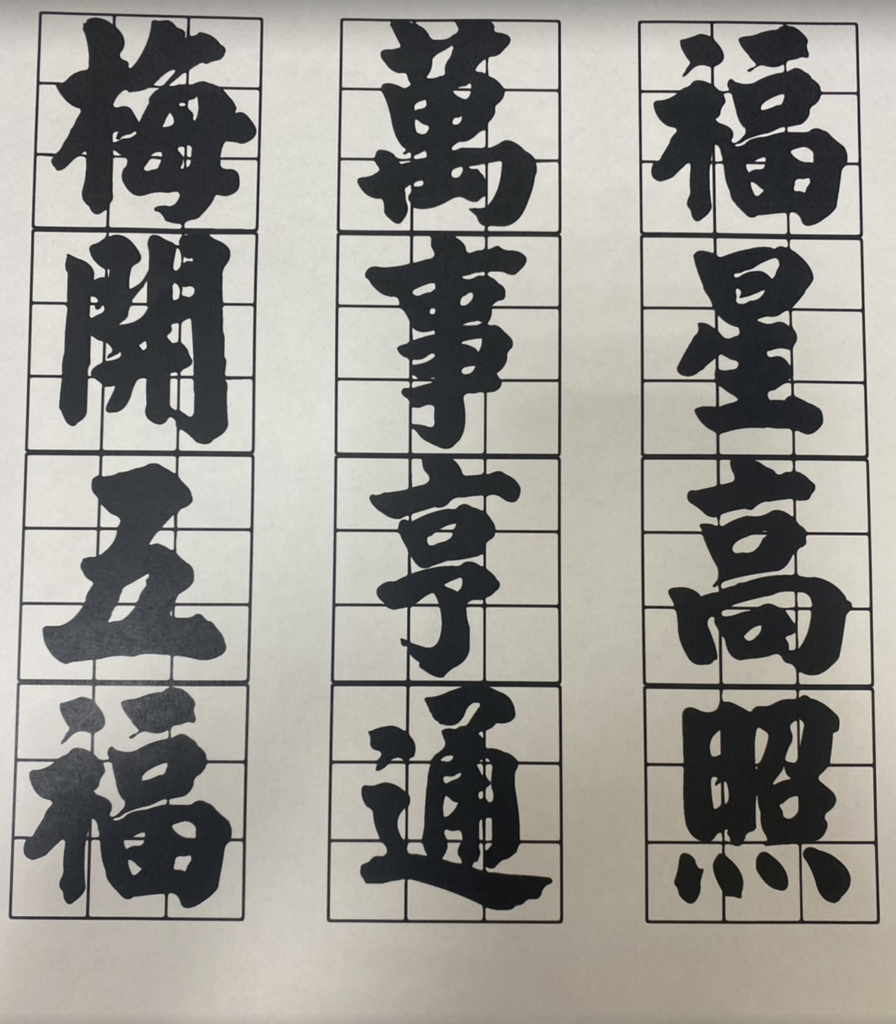 福星高照
萬事亨通
梅開五福